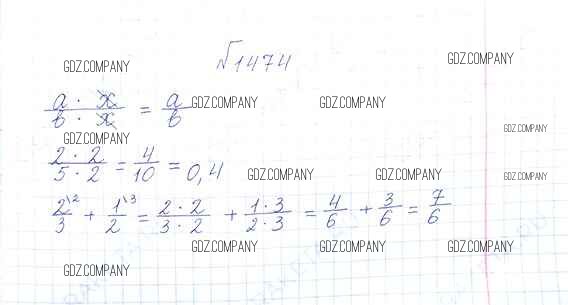 №1474
GDZ.COMPANY GDZ.COMPANY
a · x / b · x = a / b
GDZ.COMPANY GDZ.COMPANY GDZ.COMPANY
GDZ.COMPANY
2 · 2 / 5 · 2 = 4 / 10 = 0,4
GDZ.COMPANY GDZ.COMPANY GDZ.COMPANY
2\2 / 3 + 1\3 / 2 = 2 · 2 / 3 · 2 + 1 · 3 / 2 · 3 = 4 / 6 + 3 / 6 = 7 / 6
GDZ.COMPANY GDZ.COMPANY GDZ.COMPANY
GDZ.COMPANY